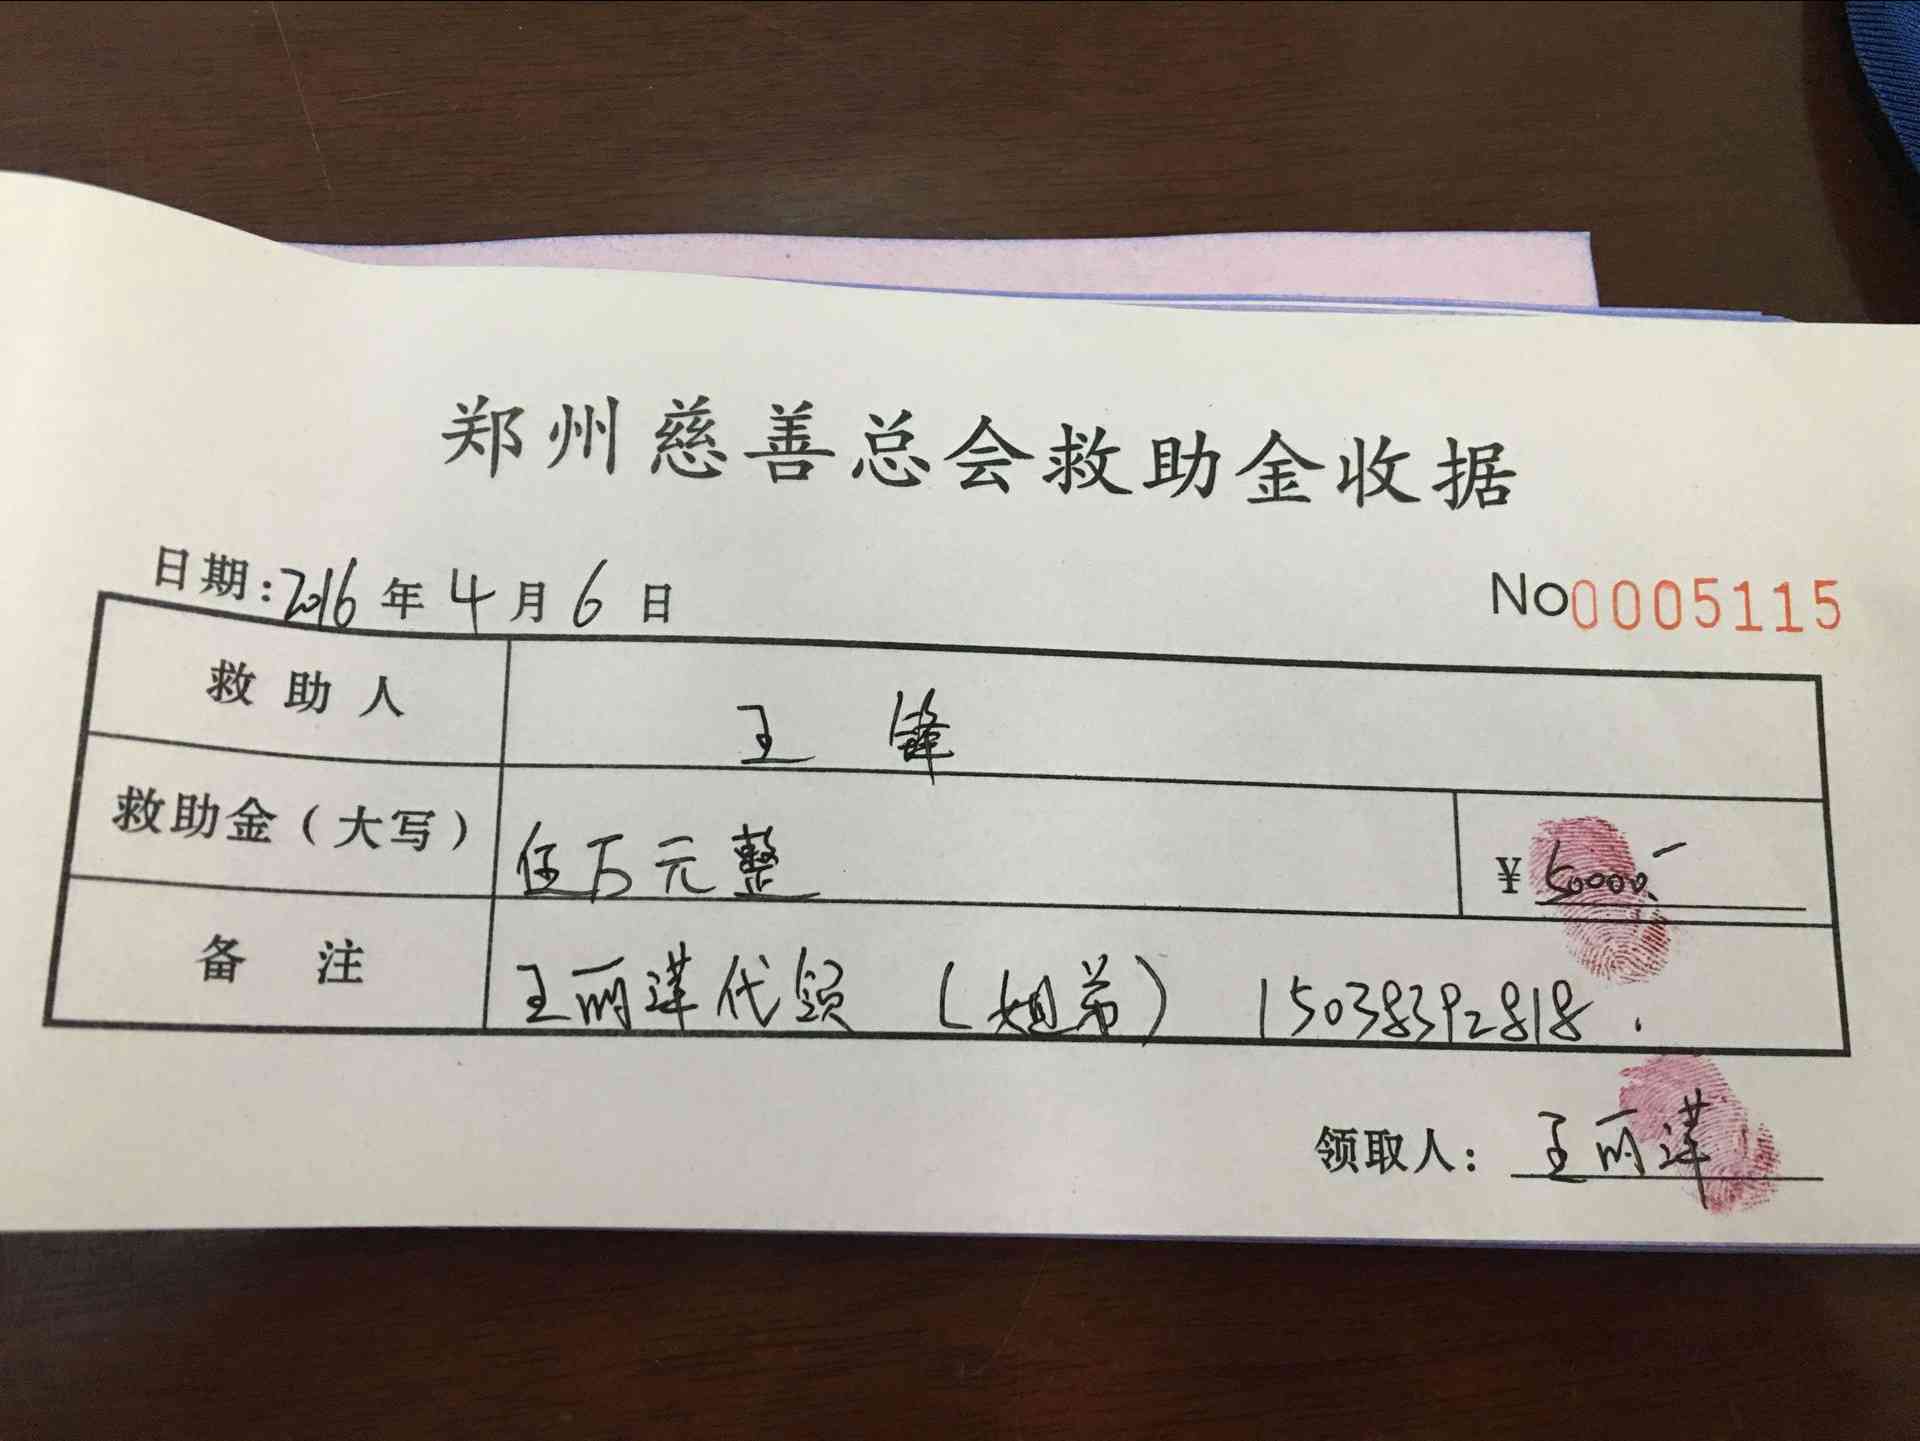 郑州慈善总会救助金收据
日期:2016年4月6日
No0005115
救助人 王锋
救助金(大写) 伍万元整 ¥50000.-
备注 王丽萍代领(姐弟) 15038392818.
领取人: 王丽萍